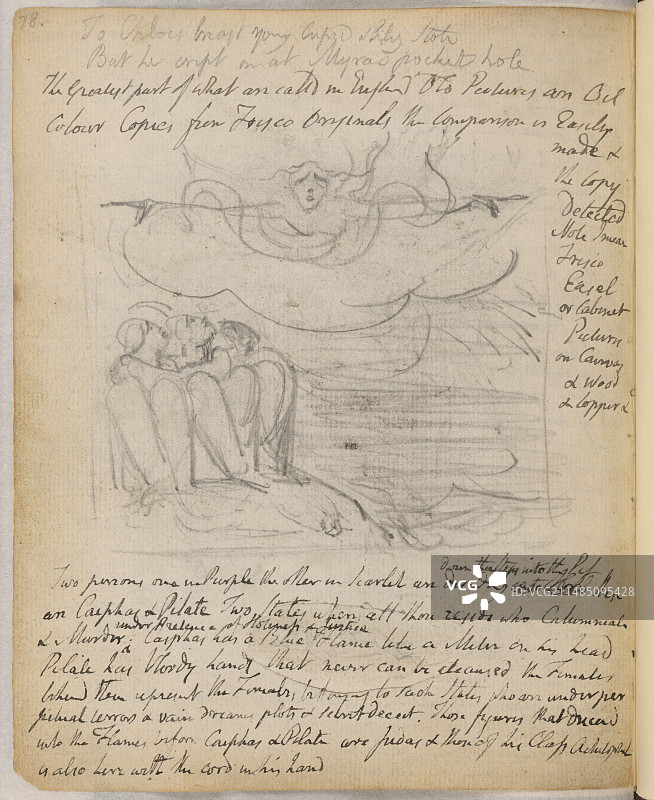 78.
To Chloes breast young Cupid slily stole
But he crept in at Myras pocket hole
The Greatest part of what are calld in England Old Pictures are Oil
Colour Copies from Fresco Originals the Comparison is Easily
made &
the Copy
Detected
Note I mean
Fresco
Easel
or Cabinet
Pictures
on Canvas
& Wood
& Copper &
down the Steps into the Pit
Two persons one in Purple the other in Scarlet are
are Caiphas & Pilate Two States where all those reside who Calumniate
under Pretence of Holiness & Justice
& Murder Caiphas has a Blue Flame like a Miter on his head
Pilate has bloody hands that never can be cleansed the Females
behind them represent the Females belonging to such States who are under per
petual terrors & vain dreams plots & secret deceit. Those figures that descend
into the Flames before Caiphas & Pilate are Judas & those of his Class Achitophel
is also here with the cord in his hand
VCG.COM
VCG211485095428